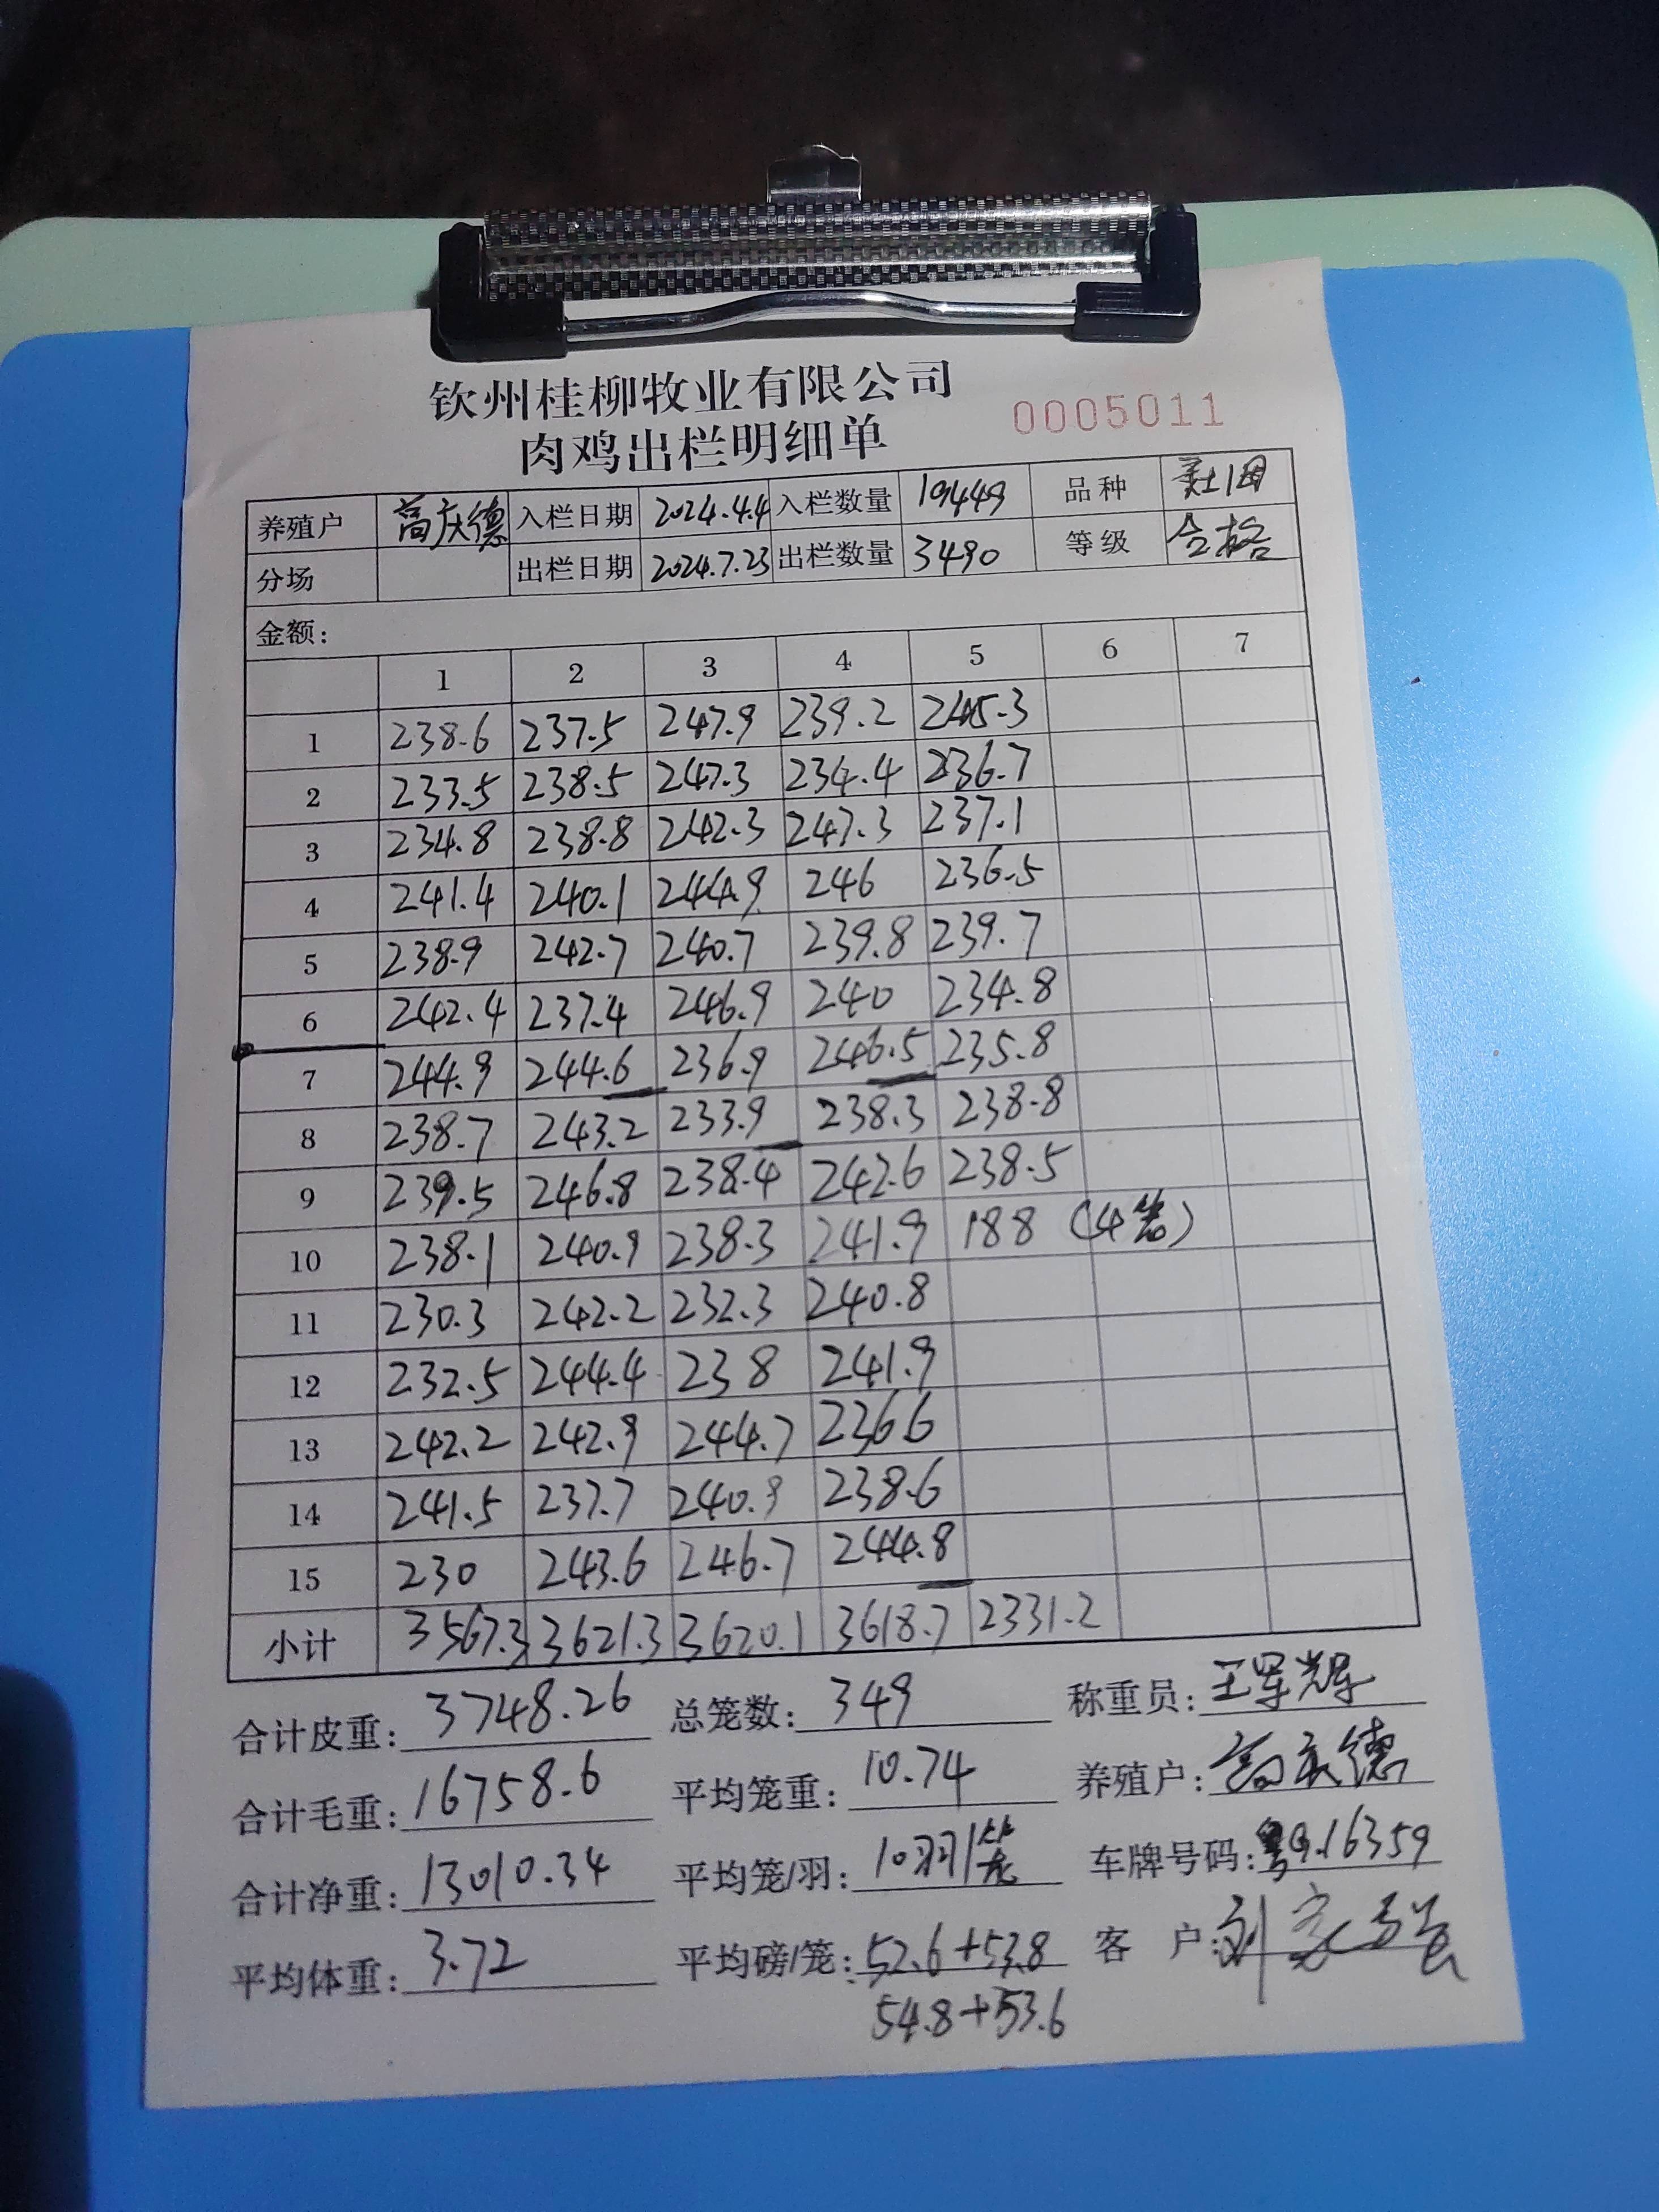 钦州桂柳牧业有限公司
肉鸡出栏明细单 0005011
养殖户 高庆德 入栏日期 2024.4.4 入栏数量 19449 品种
分场 出栏日期 2024.7.23 出栏数量 3490 等级 合格
金额:
1 2 3 4 5 6 7
1 238.6 237.5 247.9 239.2 245.3
2 233.5 238.5 247.3 234.4 236.7
3 234.8 238.8 242.3 247.3 237.1
4 241.4 240.1 244.9 246 236.5
5 238.9 242.7 240.7 239.8 239.7
6 242.4 237.4 246.9 240 234.8
7 244.9 244.6 236.9 246.5 235.8
8 238.7 243.2 233.9 238.3 238.8
9 239.5 246.8 238.4 242.6 238.5
10 238.1 240.9 238.3 241.9 188 (4笼)
11 230.3 242.2 232.3 240.8
12 232.5 244.4 238 241.9
13 242.2 242.9 244.7 236.6
14 241.5 237.7 240.9 238.6
15 230 243.6 246.7 244.8
小计 3567.3 3621.3 3620.1 3618.7 2331.2
合计皮重: 3748.26 总笼数: 349 称重员: 王军辉
合计毛重: 16758.6 平均笼重: 10.74 养殖户: 高庆德
合计净重: 13010.34 平均笼/羽: 10羽/笼 车牌号码: 粤Q.16359
平均体重: 3.72 平均磅/笼: 52.6+53.8 客 户:
54.8+53.6